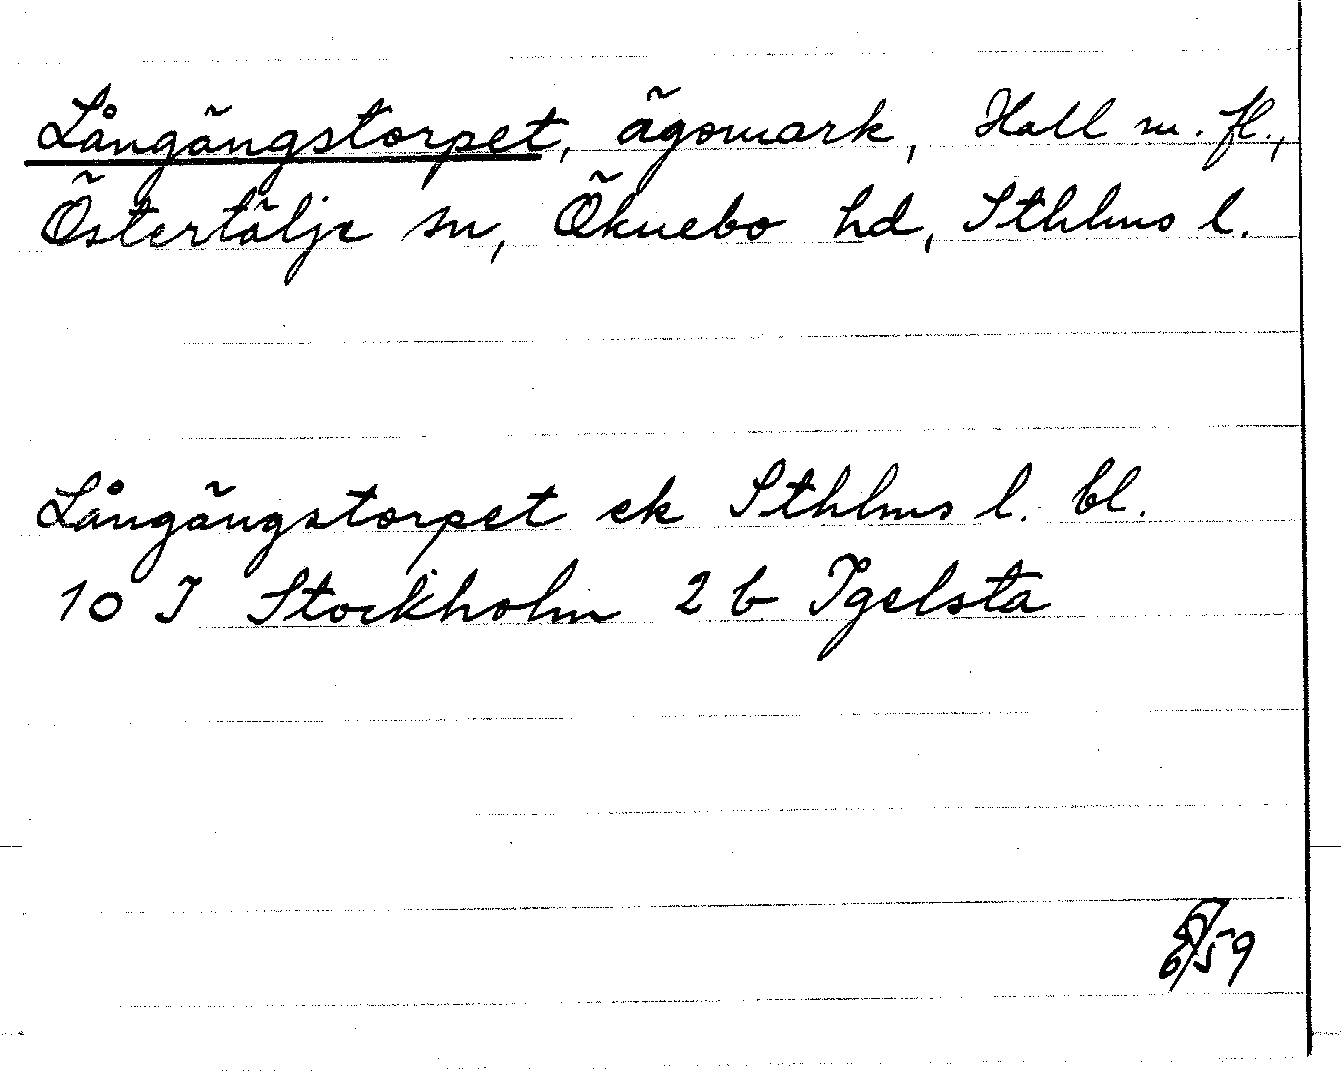 Långängstorpet, ägomark, Hall m. fl.,
Östertälje sn, Öknebo hd, Sthlms l.
Långängstorpet ek Sthlms l. bl.
10 I Stockholm 2 b Igelsta
/59